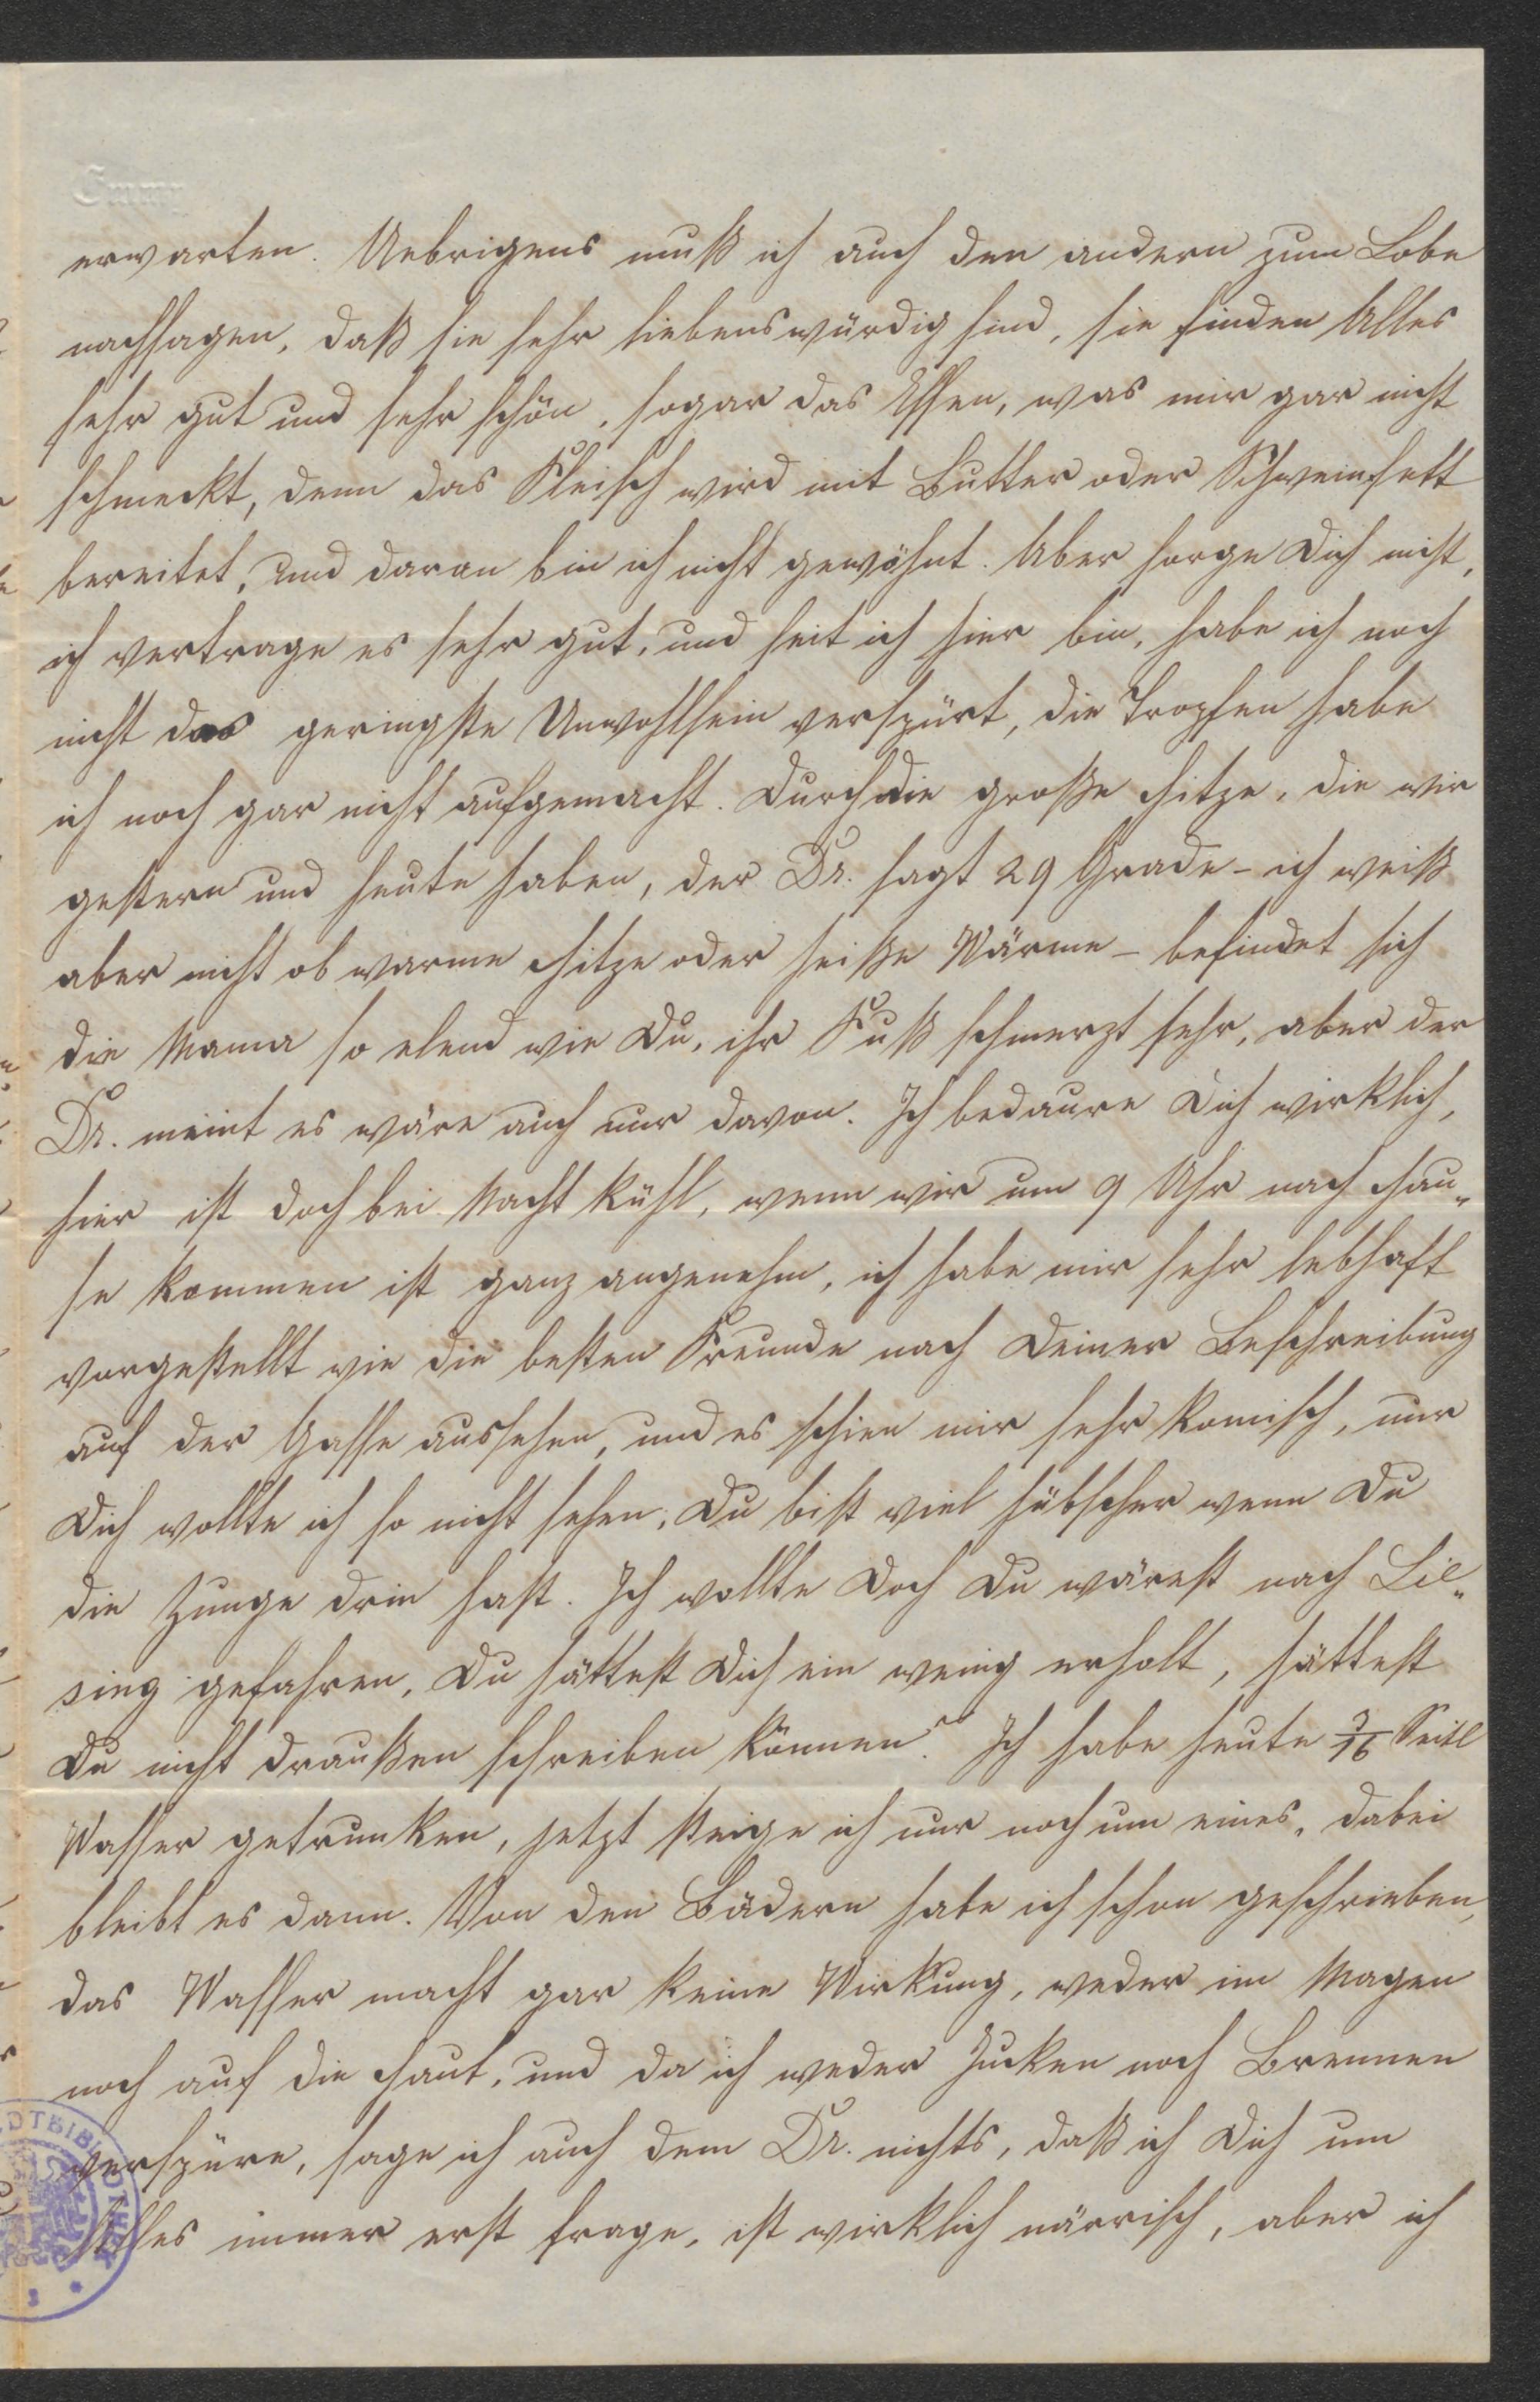 Emmy
erwarten. Uebrigens muß ich auch den andern zum Lobe
nachsagen, daß sie sehr liebenswürdig sind, sie finden Alles
sehr gut und sehr schön, sogar das Essen, was mir gar nicht
schmeckt, denn das Fleisch wird mit Butter oder Schweinfett
bereitet, und daran bin ich nicht gewöhnt. Aber sorge Dich nicht,
ich vertrage es sehr gut, und seit ich hier bin, habe ich noch
nicht das geringste Unwohlsein verspürt, die Tropfen habe
ich noch gar nicht aufgemacht. Durch die große Hitze, die wir
gestern und heute haben, der Dr. sagt 29 Grade - ich weiß
aber nicht ob warme Hitze oder heiße Wärme - befindet sich
die Mama so elend wie Du, ihr Fuß schmerzt sehr, aber der
Dr. meint es wäre auch nur davon. Ich bedaure Dich wirklich,
hier ist doch bei Nacht kühl, wenn wir um 9 Uhr nach Hau„
se kommen ist ganz angenehm, ich habe mir sehr lebhaft
vorgestellt wie die besten Freunde nach Deiner Beschreibung
auf der Gasse aussehen, und es schien mir sehr komisch, nur
Dich wollte ich so nicht sehen, Du bist viel hübscher wenn Du
die Zunge drin hast. Ich wollte doch Du wärest nach Lie„
sing gefahren, Du hättest Dich ein wenig erholt, hättest
Du nicht draußen schreiben können? Ich habe heute 3/16 Seitl
Wasser getrunken, jetzt steige ich nur noch um eines, dabei
bleibt es dann. Von den Bädern habe ich schon geschrieben,
das Wasser macht gar keine Wirkung, weder im Magen
noch auf die Haut, und da ich weder Jucken noch Brennen
verspüre, sage ich auch dem Dr. nichts, daß ich Dich um
Alles immer erst frage, ist wirklich närrisch, aber ich